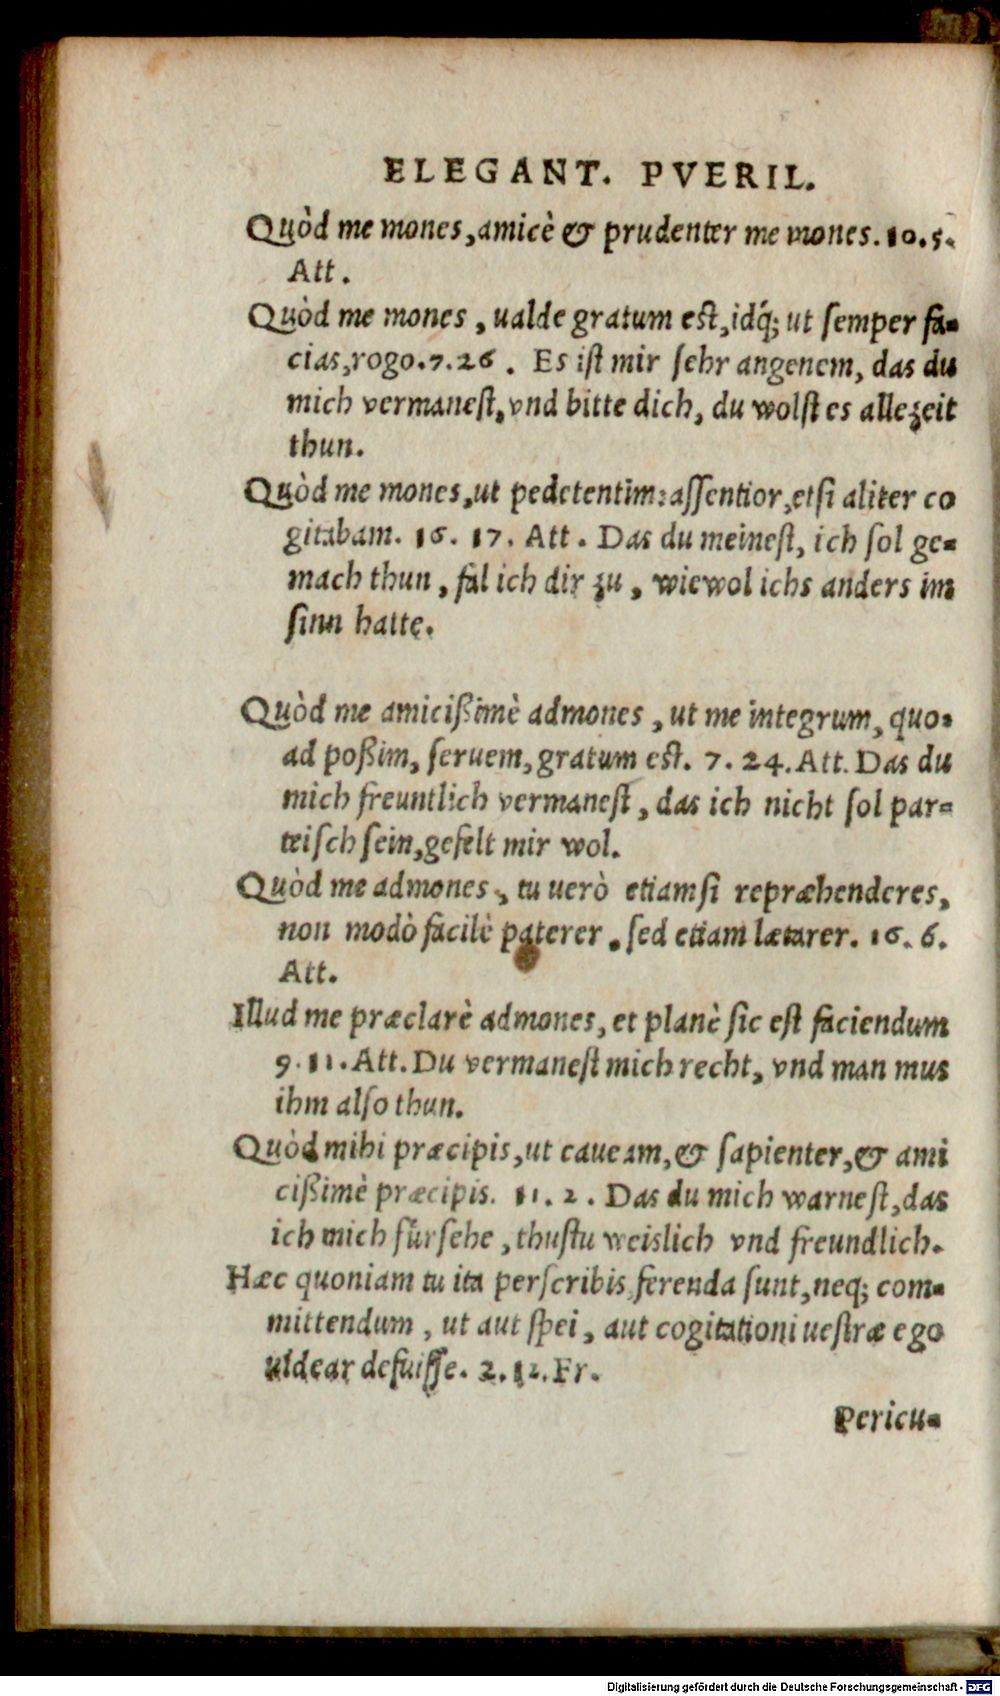 ELEGANT. PVERIL.
Quòd me mones, amicè & prudenter me mones. 10. 5.
Att.
Quòd me mones, ualde gratum est, idq́; ut semper fa-
cias, rogo. 7. 26. Es ist mir sehr angenem, das du
mich vermanest, vnd bitte dich, du wolst es allezeit
thun.
Quòd me mones, ut pedetentim: assentior, etsi aliter co
gitabam. 16. 17. Att. Das du meinest, ich sol ge-
mach thun, fal ich dir zu, wiewol ichs anders im
sinn hatte.
Quòd me amicißimè admones, ut me integrum, quo-
ad poßim, seruem, gratum est. 7. 24. Att. Das du
mich freuntlich vermanest, das ich nicht sol par-
teisch sein, gefelt mir wol.
Quòd me admones, tu uerò etiamsi repræhenderes,
non modò facilè paterer, sed etiam lætarer. 16. 6.
Att.
Illud me præclarè admones, et planè sic est faciendum
9. 11. Att. Du vermanest mich recht, vnd man mus
ihm also thun.
Quòd mihi præcipis, ut caueam, & sapienter, & ami
cißimè præcipis. 11. 2. Das du mich warnest, das
ich mich fürsehe, thustu weislich vnd freundlich.
Hæc quoniam tu ita perscribis, ferenda sunt, neq; com-
mittendum, ut aut spei, aut cogitationi uestræ ego
uidear defuisse. 2. 12. Fr.
Pericu-
Digitalisierung gefördert durch die Deutsche Forschungsgemeinschaft - DFG